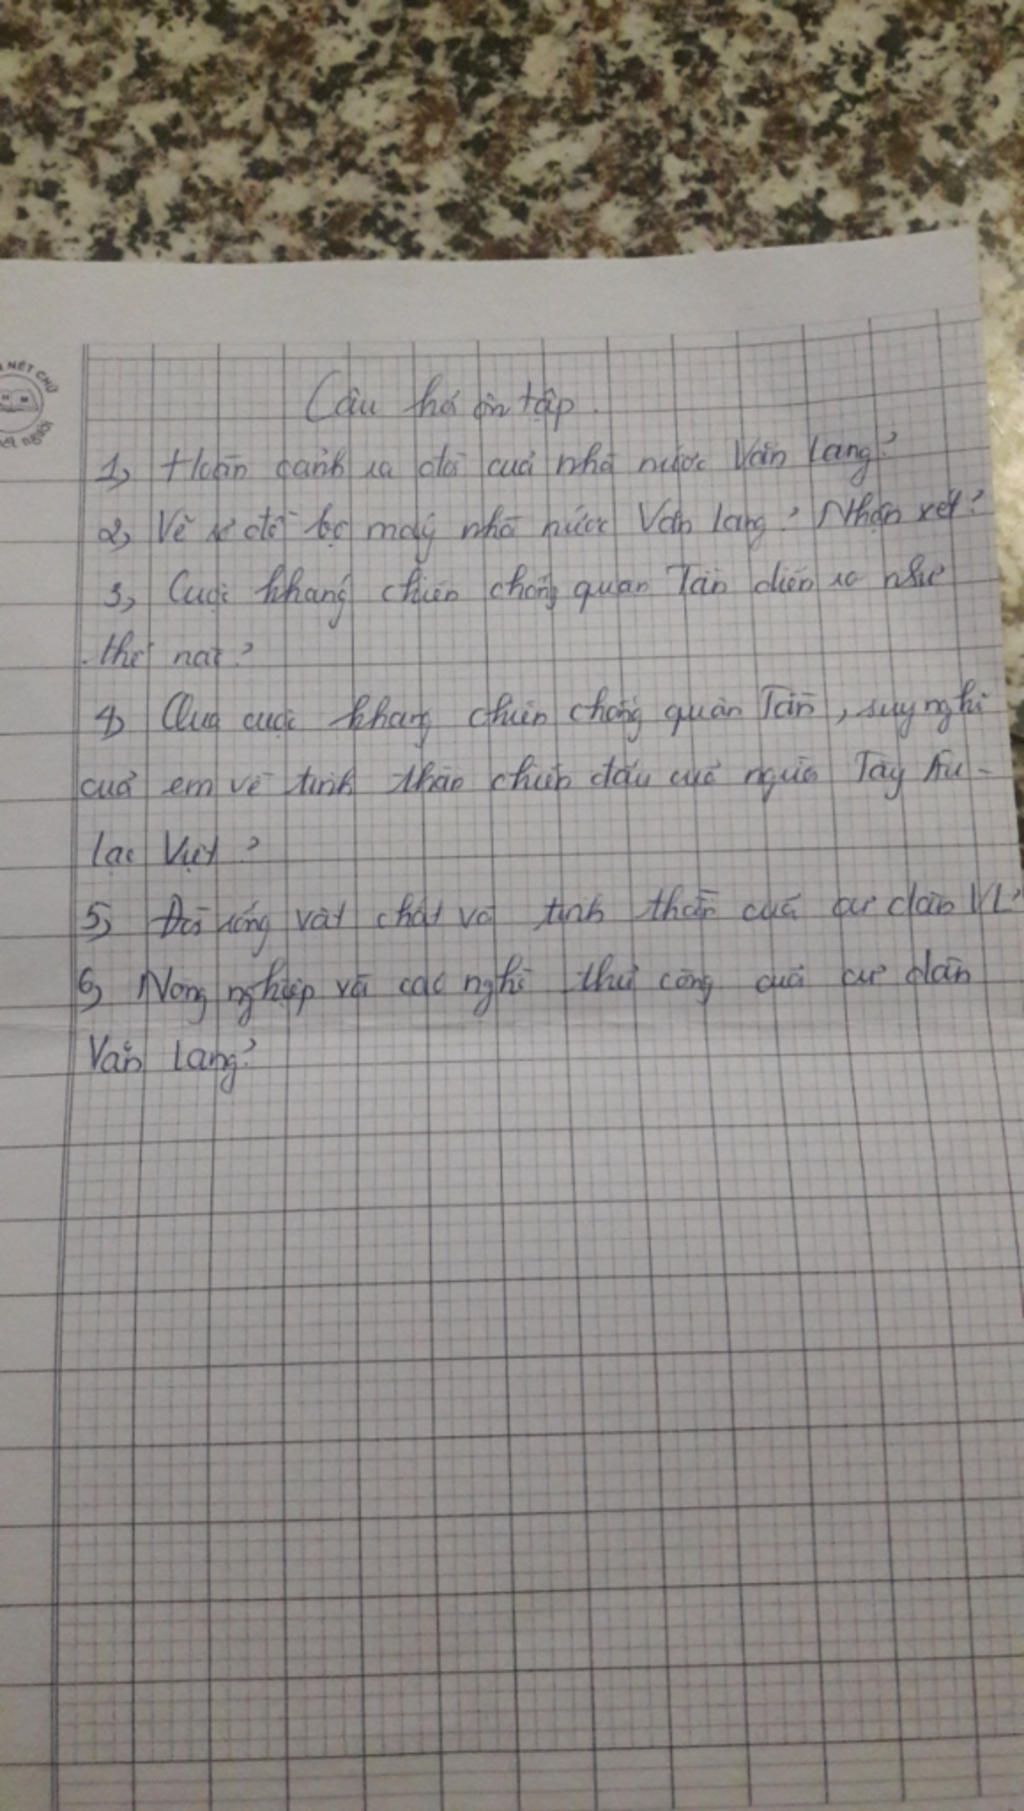 NÉT CHỮ
NẾT NGƯỜI
Câu hỏi ôn tập.
1, Hoàn cảnh ra đời của nhà nước Văn Lang?
2, Vẽ sơ đồ bộ máy nhà nước Văn Lang? Nhận xét?
3, Cuộc kháng chiến chống quân Tần diễn ra như
thế nào?
4, Qua cuộc kháng chiến chống quân Tần, suy nghĩ
của em về tinh thần chiến đấu của người Tây Âu -
Lạc Việt?
5, Đời sống vật chất và tinh thần của cư dân VL?
6, Nông nghiệp và các nghề thủ công của cư dân
Văn Lang?